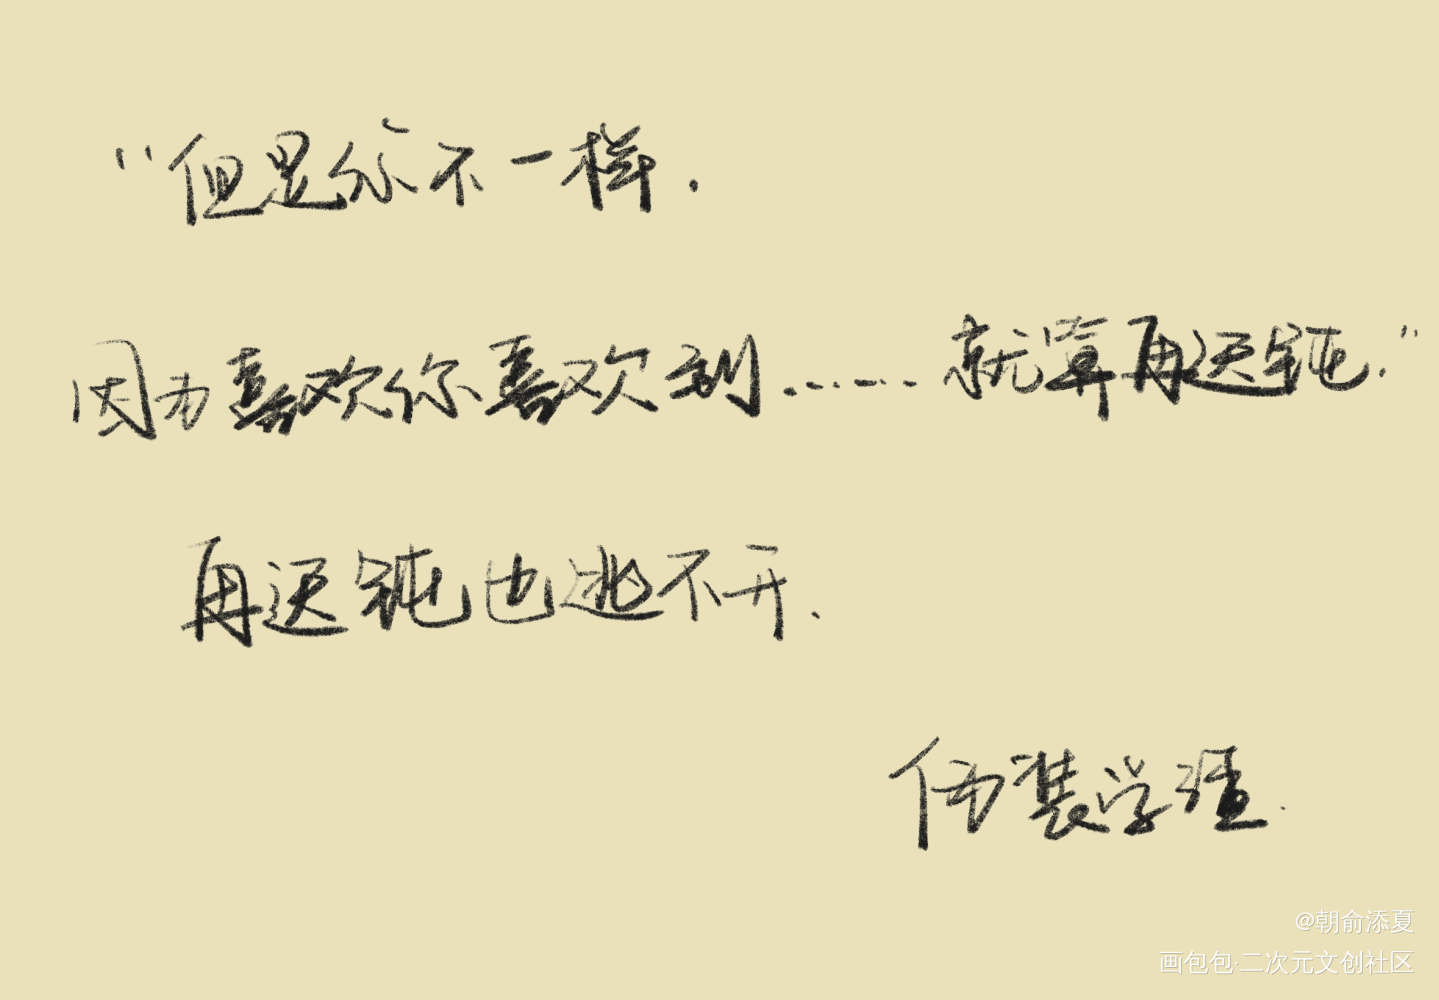 “但是你不一样.
因为喜欢你喜欢到……就算再迟钝.”
再迟钝也逃不开.
伪装学渣.
@朝俞添夏
画包包·二次元文创社区